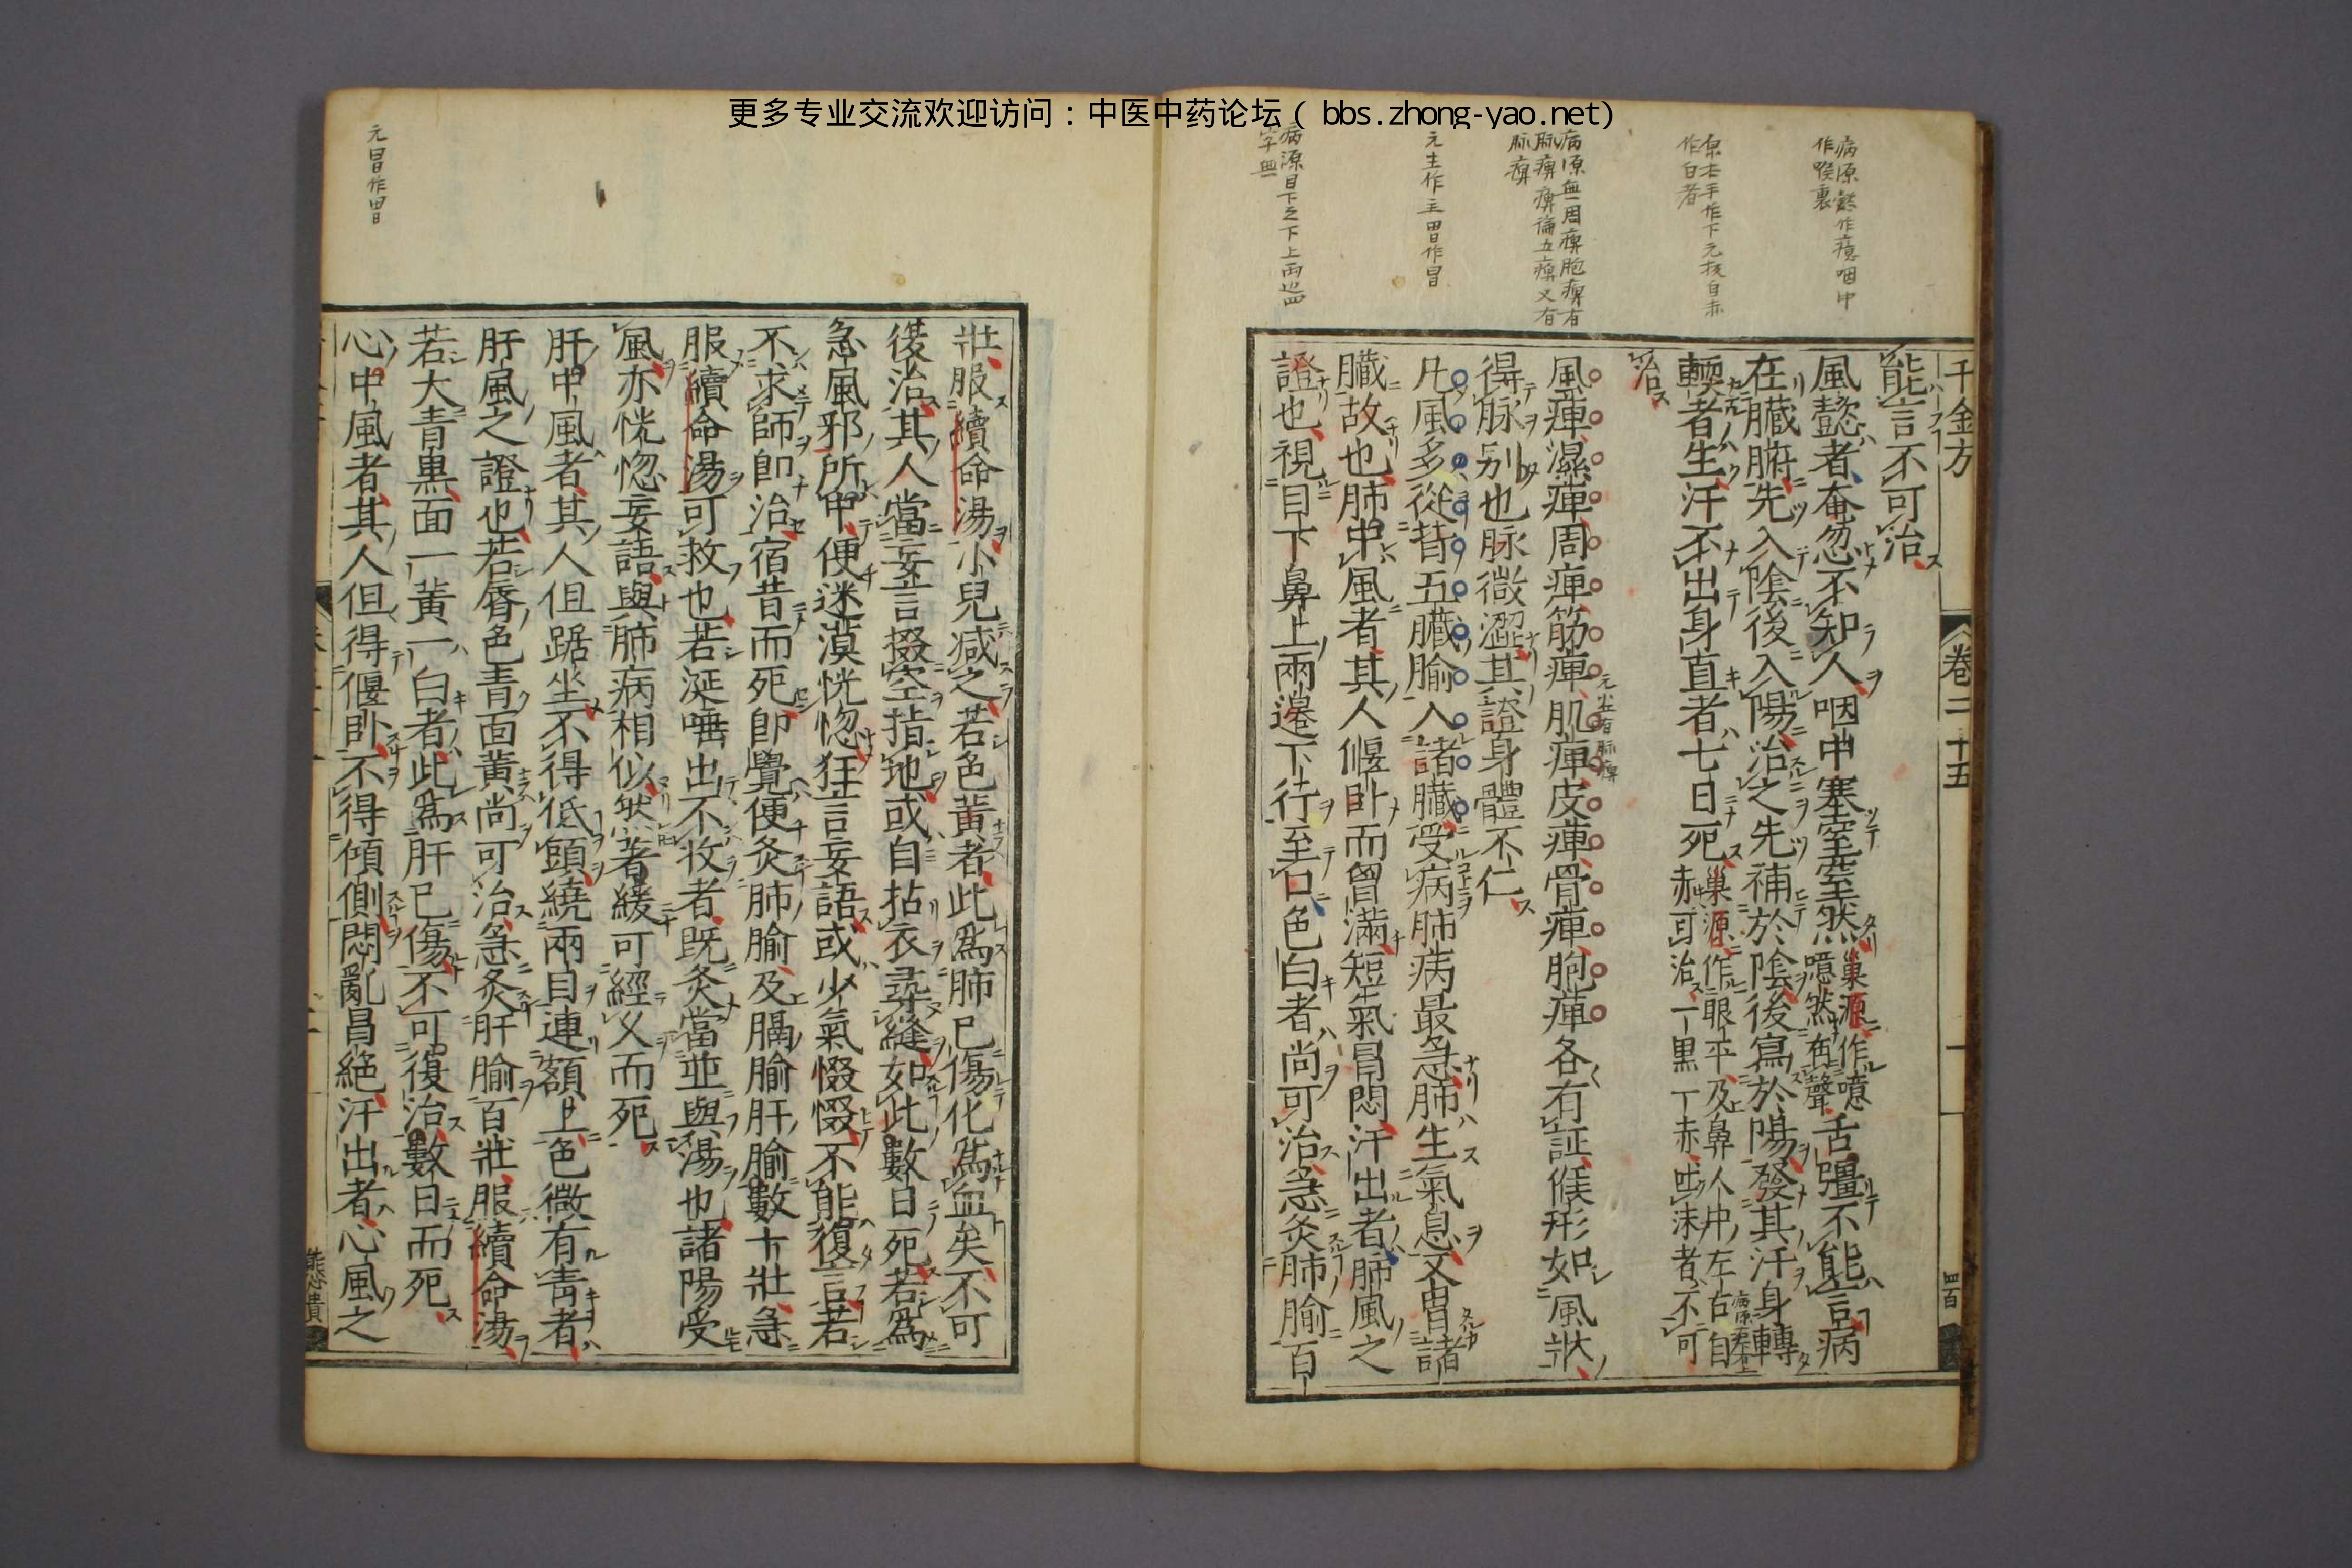 更多专业交流欢迎访问：中医中药论坛（bbs.zhong-yao.net）
病原懿作癔咽中
作喉裏
作白者
病原無周痺胞痺有
脉痺
元主作主胃作冒
病源目下之下上両辺四
字無
元冒作胃
千金方
卷二十五
能言不可治
風懿者奄忽不知人咽中塞窒窒然巢源作噫噫然有聲舌彊不能言病
在臓腑先入陰後入陽治之先補於陰後寫於陽發其汗身轉
軟者生汗不出身直者七日死巢源作眼平及鼻人中左右白赤可治一黑丁赤吐沫者不可
治
風痺濕痺周痺筋痺肌痺皮痺骨痺胞痺各有証候形如風狀
得脉别也脉微澀其證身體不仁
凡風多從背五臓腧入諸臓受病肺病最急肺主氣息又胃諸
臓故也肺中風者其人偃卧而曾滿短氣冒悶汗出者肺風之
證也視目下鼻上兩邊下行至口色白者尚可治急灸肺腧百
壯服續命湯小兒减之若色黄者此爲肺已傷化爲血矣不可
復治其人當妄言掇空指地或自拈衣尋縫如此數日死若爲
急風邪所中便迷漠恍惚狂言妄語或少氣惙惙不能復言若
不求師即治宿昔而死即覺便灸肺腧及膈腧肝腧數十壯急
服續命湯可救也若涎唾出不收者既灸當並與湯也諸陽受
風亦恍惚妄語與肺病相似然著緩可經久而死
肝中風者其人但踞坐不得低頭繞兩目連額上色微有青者
肝風之證也若脣色青面黄尚可治急灸肝腧百壯服續命湯
若大青黒面一黄一白者此爲肝已傷不可復治數日而死
心中風者其人但得偃卧不得傾側悶亂冒絶汗出者心風之